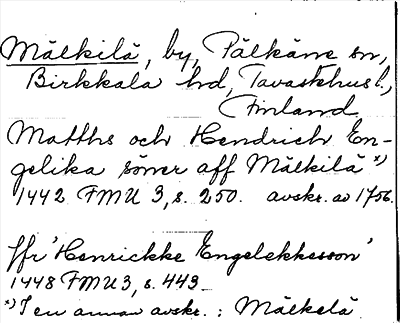 Mälkilä, by, Pälkäne sn,
Birkkala hd, Tavastehus l.,
Finland
Matths och Hendrich En-
gelika söner aff Mälkilä *)
1442 FMU 3, s. 250. avskr. av 1756.
Jfr 'Henrickke Engelekkesson'
1448 FMU 3, s. 443
*) I en annan avskr.: Mälkelä